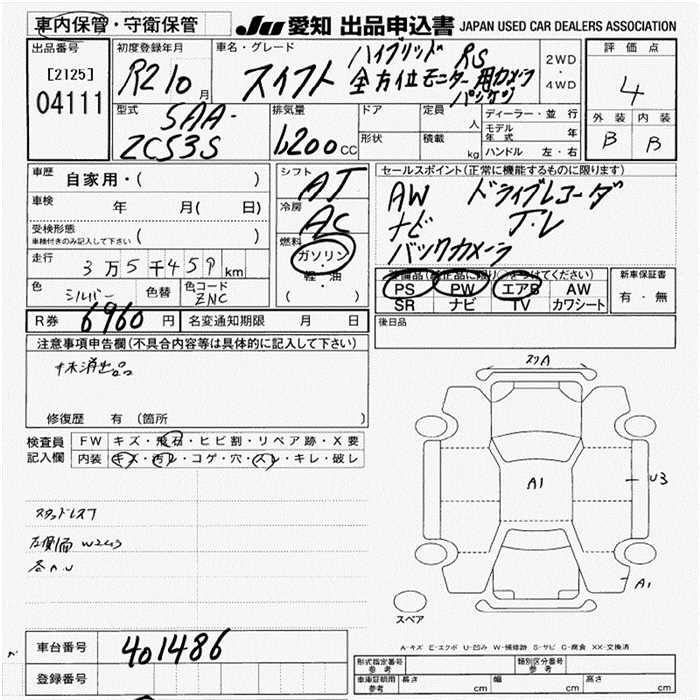 車内保管・守衛保管
JU 愛知 出品申込書 JAPAN USED CAR DEALERS ASSOCIATION
出品番号
[2125]
04111
初度登録年月
R2 10 月
車名・グレード
スイフト ハイブリッド RS
全方位モニター用カメラ
パッケジ
2WD
・
4WD
評価点
4
外装 内装
B B
型式
5AA-
ZC53S
排気量
1,200 cc
ドア
形状
定員 人
積載 kg
ディーラー・並行
モデル年式 年
ハンドル 左・右
車歴 自家用・( )
車検 年 月( 日)
受検形態
車検付きのみ記入して下さい ( )
走行 3万5千459km
色 シルバー 色替 色コード ZNC
シフト AT
冷房 AC
燃料
ガソリン
・
軽・油
( )
セールスポイント(正常に機能するものに限ります)
AW ドライブレコーダ
ナビ J・V
バックカメラ
装備品(純正品に限り○をつけてください)
PS PW エアB AW
SR ナビ TV カワシート
新車保証書
有・無
R券 6960 円 名変通知期限 月 日
後日品
注意事項申告欄(不具合内容等は具体的に記入して下さい)
修復歴 有(箇所 )
検査員
記入欄
FW キズ・飛石・ヒビ割・リペア跡・X要
内装 キズ・汚レ・コゲ・穴・スレ・キレ・破レ
スタッドレス
A1
U3
A1
スペア
A-キズ E-エクボ U-凹み W-補修跡 S-サビ C-腐食 XX-交換済
車台番号 401486
登録番号
形式指定番号
参考
類別区分番号
参考
車庫証明用
参考
長さ cm 幅 cm 高さ cm